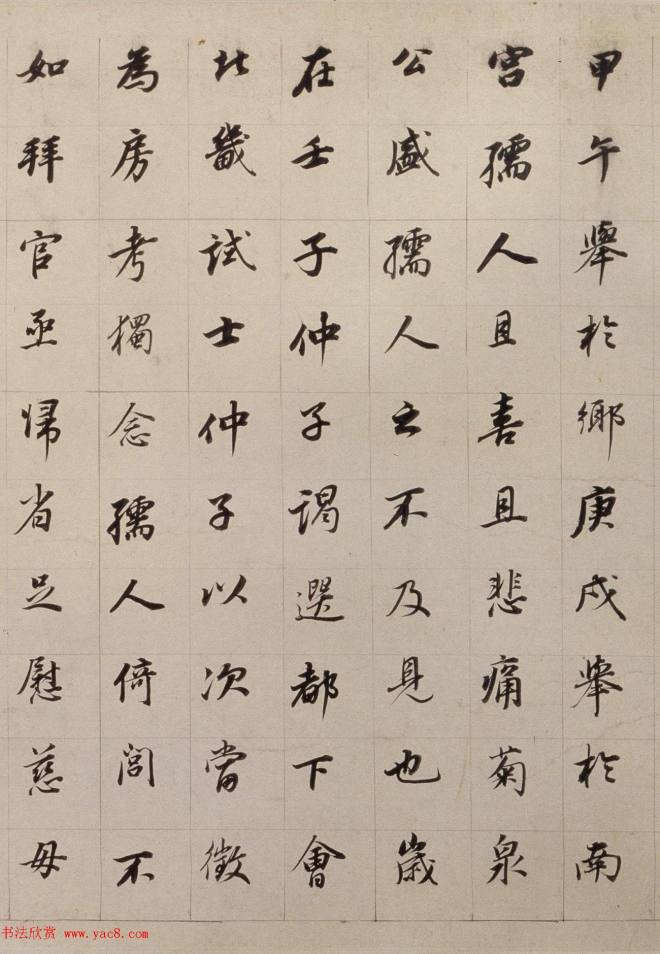 甲午舉於鄉庚戍舉於南
宮孺人且喜且悲痛菊泉
公盛孺人之不及見也歲
在壬子仲子謁選都下會
北畿試士仲子以次當徵
為房考獨念孺人倚閭不
如拜官亟歸省足慰慈母
书法欣赏 www.yac8.com